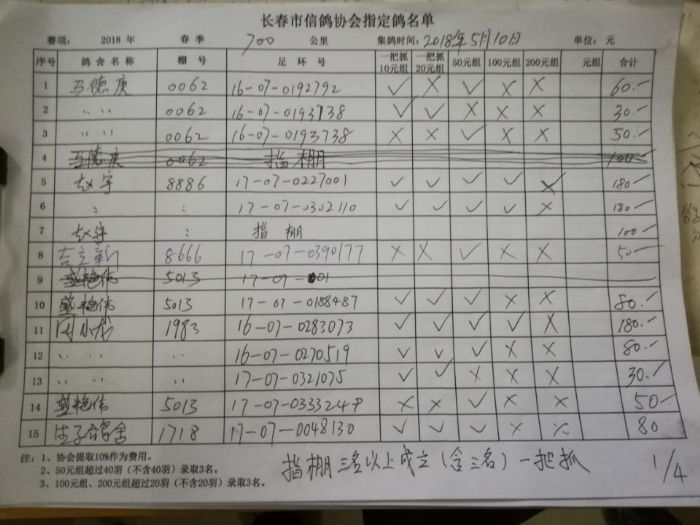 长春市信鸽协会指定鸽名单
赛项: 2018 年 春 季 700 公里 集鸽时间: 2018年5月10日 单位: 元
序号 鸽舍名称 棚号 足环号 一把抓10元组 一把抓20元组 50元组 100元组 200元组 元组 合计
1 马德庚 0062 16-07-0192792 ✓ × ✓ × × 60.-
2 〃 〃 0062 16-07-0193738 ✓ ✓ × × × 30.-
3 〃 〃 0062 16-07-0193738 × × ✓ × × 50.-
4 马德庚 0062 指棚 100.-
5 赵宇 8886 17-07-0227001 ✓ ✓ ✓ ✓ × 180.-
6 : : 17-07-0302110 ✓ ✓ ✓ ✓ × 180.-
7 赵宇 指棚 100.-
8 8666 17-07-0390177 × × ✓ × × 50.-
9 盛艳伟 5013 17-07-001
10 盛艳伟 5013 17-07-0188487 ✓ ✓ ✓ × × 80.-
11 1983 16-07-0283073 ✓ ✓ ✓ ✓ × 180.-
12 〃 〃 16-07-0270519 ✓ ✓ ✓ × × 80.-
13 〃 〃 17-07-0321075 ✓ ✓ × × × 30.-
14 盛艳伟 5013 17-07-0333248 × × ✓ × × 50-
15 1718 17-07-0048130 ✓ ✓ ✓ × × 80
注: 1、协会提取10%作为费用。
2、50元组超过40羽(不含40羽)录取3名。
3、100元组、200元组超过20羽(不含20羽)录取3名。
指棚三名以上成立(含三名)一把抓 1/4